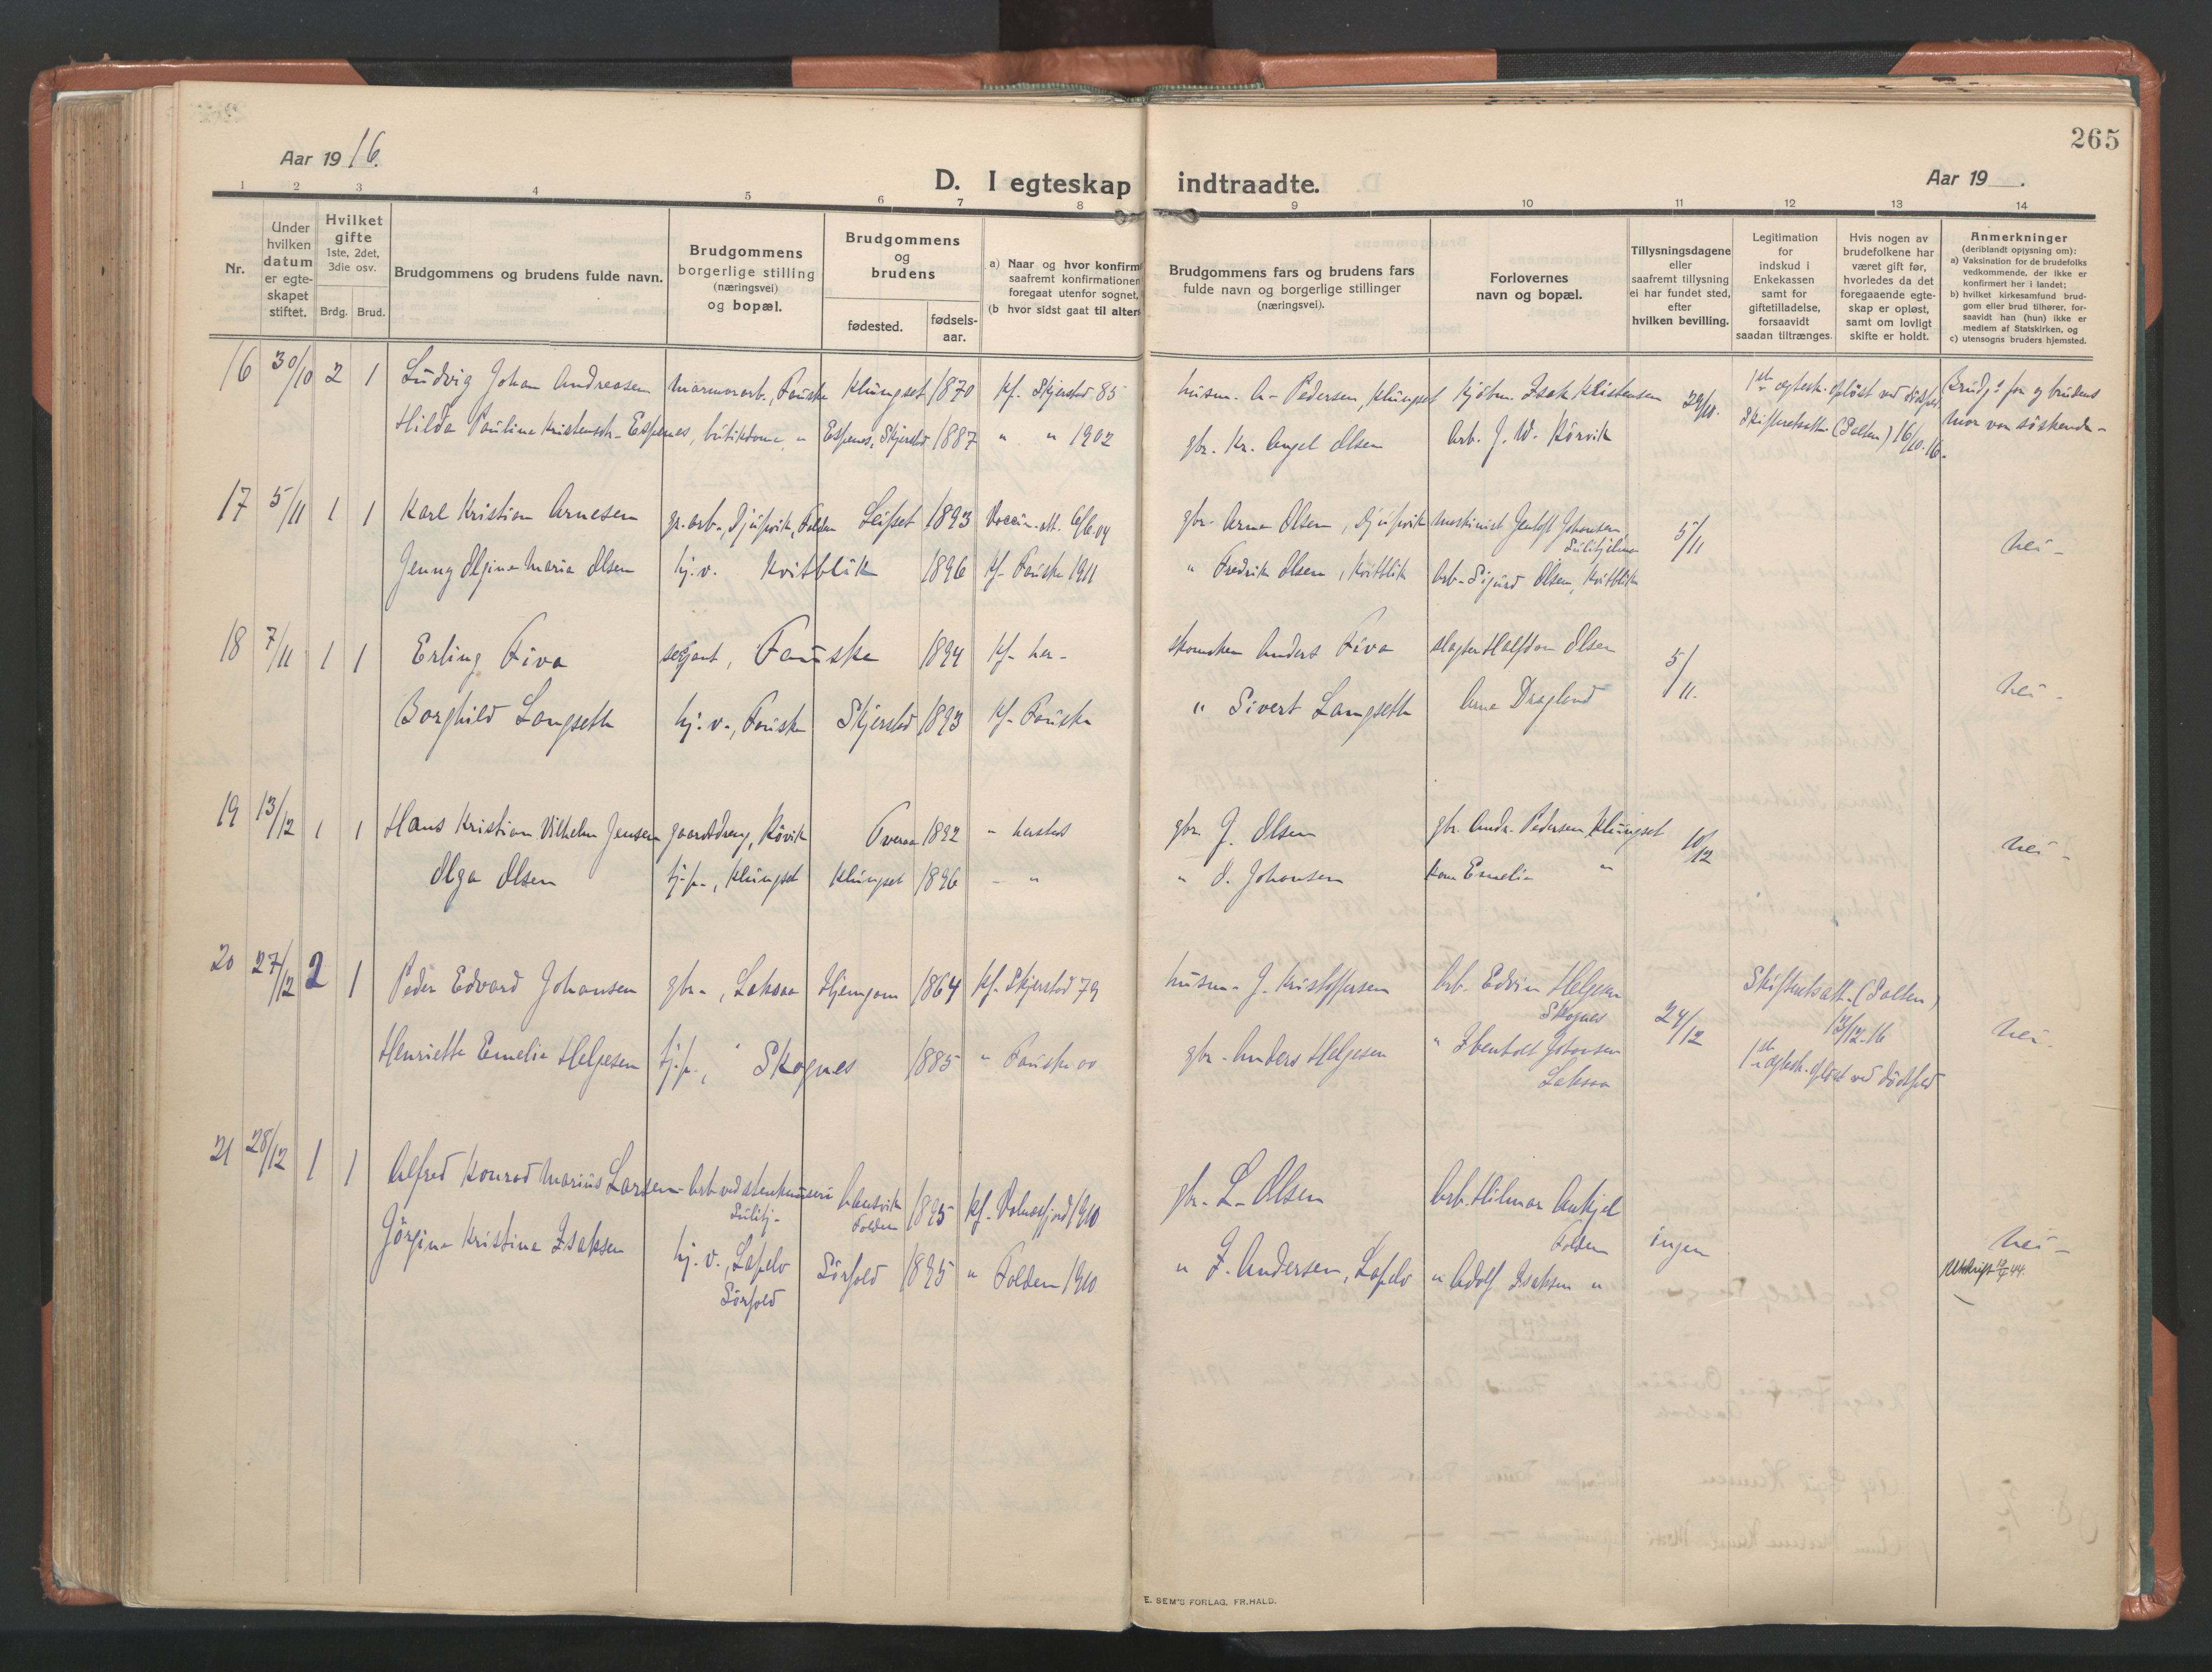 265
Aar 19 16.
Aar 19 .
D. I egteskap indtraadte.
1 2 3 4 5 6 7 8 9 10 11 12 13 14
Nr.
Under hvilken datum er egte-skapet stiftet.
Hvilket gifte 1ste, 2det, 3die osv.
Brdg. Brud.
Brudgommens og brudens fulde navn.
Brudgommens borgerlige stilling (næringsvei) og bopæl.
Brudgommens og brudens
fødested.
fødsels-aar.
a) Naar og hvor konfirm
saafremt konfirmationen
foregaat utenfor sognet,
(b hvor sidst gaat til alter
Brudgommens fars og brudens fars
fulde navn og borgerlige stillinger
(næringsvei).
Forlovernes
navn og bopæl.
Tillysningsdagene
eller
saafremt tillysning
ei har fundet sted,
efter
hvilken bevilling.
Legitimation
for
indskud i
Enkekassen
samt for
giftetilladelse,
forsaavidt
saadan tiltrænges.
Hvis nogen av
brudefolkene har
været gift før,
hvorledes da det
foregaaende egte-
skap er opløst,
samt om lovligt
skifte er holdt.
Anmerkninger
(deriblandt opiysning om):
a) Vaksination for de brudefolks
vedkommende, der ikke er
konfirmert her i landet;
b) hvilket kirkesamfund brud-
gom eller brud tilhører, for-
saavidt han (hun) ikke er
medlem af Statskirken, og
c) utensogns bruders hjemsted.
16 30/10 2 1 Ludvig Johan Andreasen marmorarb., Fauske Klungset 1870 Kf. Skjerstad 85 husm. A- Pedersen, Klungset Kjøbm. Isak Kristensen 29/10. 1ste egtesk. opløst ved dødsfal Brudg's far og brudens
Hilda Pauline Kristensdr. Espenes, butikdame " Espenes, Skjerstad 1887 " " 1902 gbr. Kr. Angel Olsen Arb. J. W. Körvik Skifteretsatt. (Salten) 16/10.16. mor var söskende-
17 5/11 1 1 Karl Kristian Arnesen gr.arb., Djupvik, Folden Leifset 1893 Vaccin. att. 6/6.04 gbr. Arne Olsen, Djupvik maskinist Jentoft Johansen, Sulitjelma 5/11 nei-
Jenny Olgine Marie Olsen hj.v. Kvitblik 1896 Kf. Fauske 1911 " Fredrik Olsen, Kvitblik Arb. Sigurd Olsen, Kvitblik
18 7/11 1 1 Erling Fiva sersjant, Fauske 1894 Kf. her- skomaker Anders Fiva slagter Halfdan Olsen 5/11. nei-
Borghild Langseth hj.v., Fauske Skjerstad 1893 Kf. Fauske " Sivert Langseth Arne Dragland
19 13/12 1 1 Hans Kristian Vilhelm Jensen gaardsdreng, Røvik Tveraa 1892 " hersteds gbr. J. Olsen gbr. Andr. Pedersen Klungset 10/12 nei-
Olga Olsen tj.p., Klungset Klungset 1896 - " " O. Johansen Kone Emelie "
20 27/12 2 1 Peder Edvard Johansen gbr., Laksaa Hjemgam 1864 Kf. Skjerstad 79 husm. J. Kristoffersen Arb. Edvin Helgesen Skognes 24/12 Skifteretsatt. (Salten) 13/12.16 nei-
Henriette Emelie Helgesen tj.p., " Skognes 1885 " Fauske 00 gbr. Anders Helgesen " Ibenholt Johansen Laksaa 1ste egtesk. opløst ved dödsfald
21 28/12 1 1 Alfred Konrad Marius Larsen Arb. ved stenknuseri Sulitj. Aansvik Folden 1895 Kf. Valnesfjord 1910 gbr. L. Olsen Arb. Hilmar Ankjel Folden ingen nei-
Jörgine Kristine Isaksen hj.v., Lapelv Sörfold Sörfold 1895 " Folden 1910 " I. Andersen, Lapelv " Adolf Isaksen " Utskrift 44.
E. SEM'S FORLAG, FR.HALD.